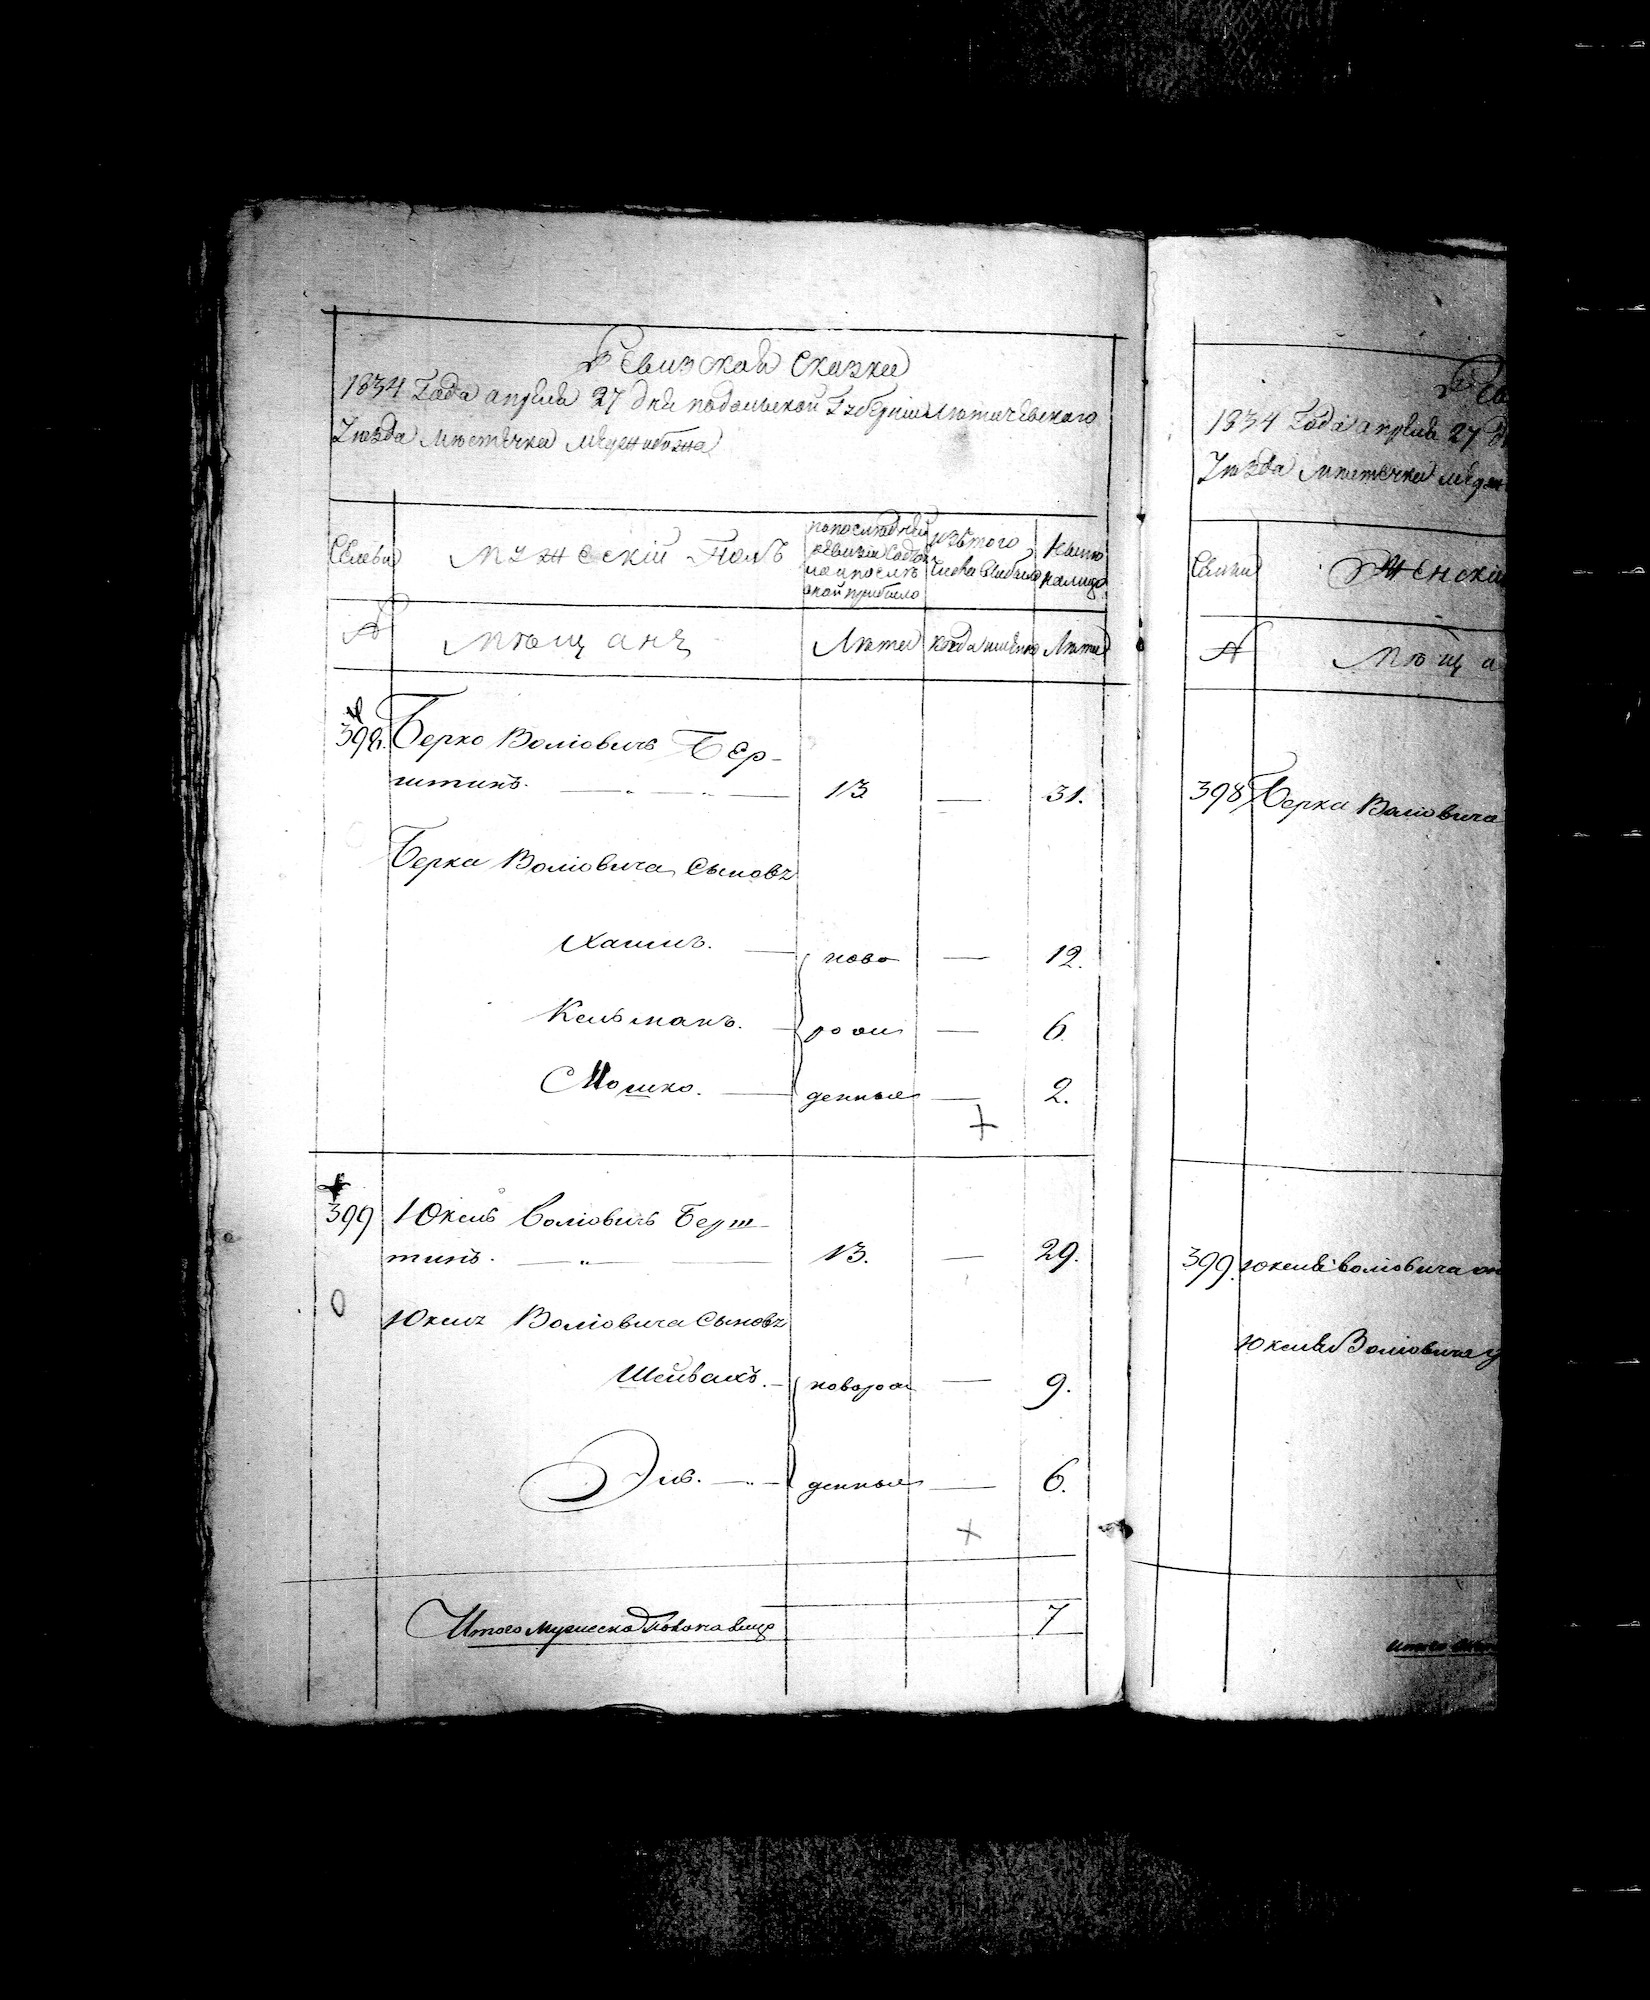 Ревизская Сказка
1834 Года апреля 27 дня подольской Губерніи Лѣтичевского
Уѣзда Мѣстечка Меджибожа
Семьи
мужескій Полъ
по последней
ревизіи состо
изътого
числа выбыло
Ныне
налицо
№
мѣщанъ
Лѣта
когда именно
Лѣта
398.
Берко Воліовичъ Бер-
штинъ.
13
—
31.
Берка Воліовича Сыновъ
Хаимъ.
ново
—
12.
Кельманъ.
рож
—
6.
Мошко.
денные
—
2.
399
Юкель Воліовичъ Берш-
тинъ.
13.
—
29.
Юкеля Воліовича Сыновъ
Шейвахъ.
новорож
—
9.
Эль.
денные
—
6.
Итого мужеска пола на лицо
7
1834 Года апреля 27
Уѣзда Мѣстечка медж
Семьи
Женскій
№
Мѣща
398
Берка Воліовича
399.
Юкеля Воліовича
Юкеля Воліовича